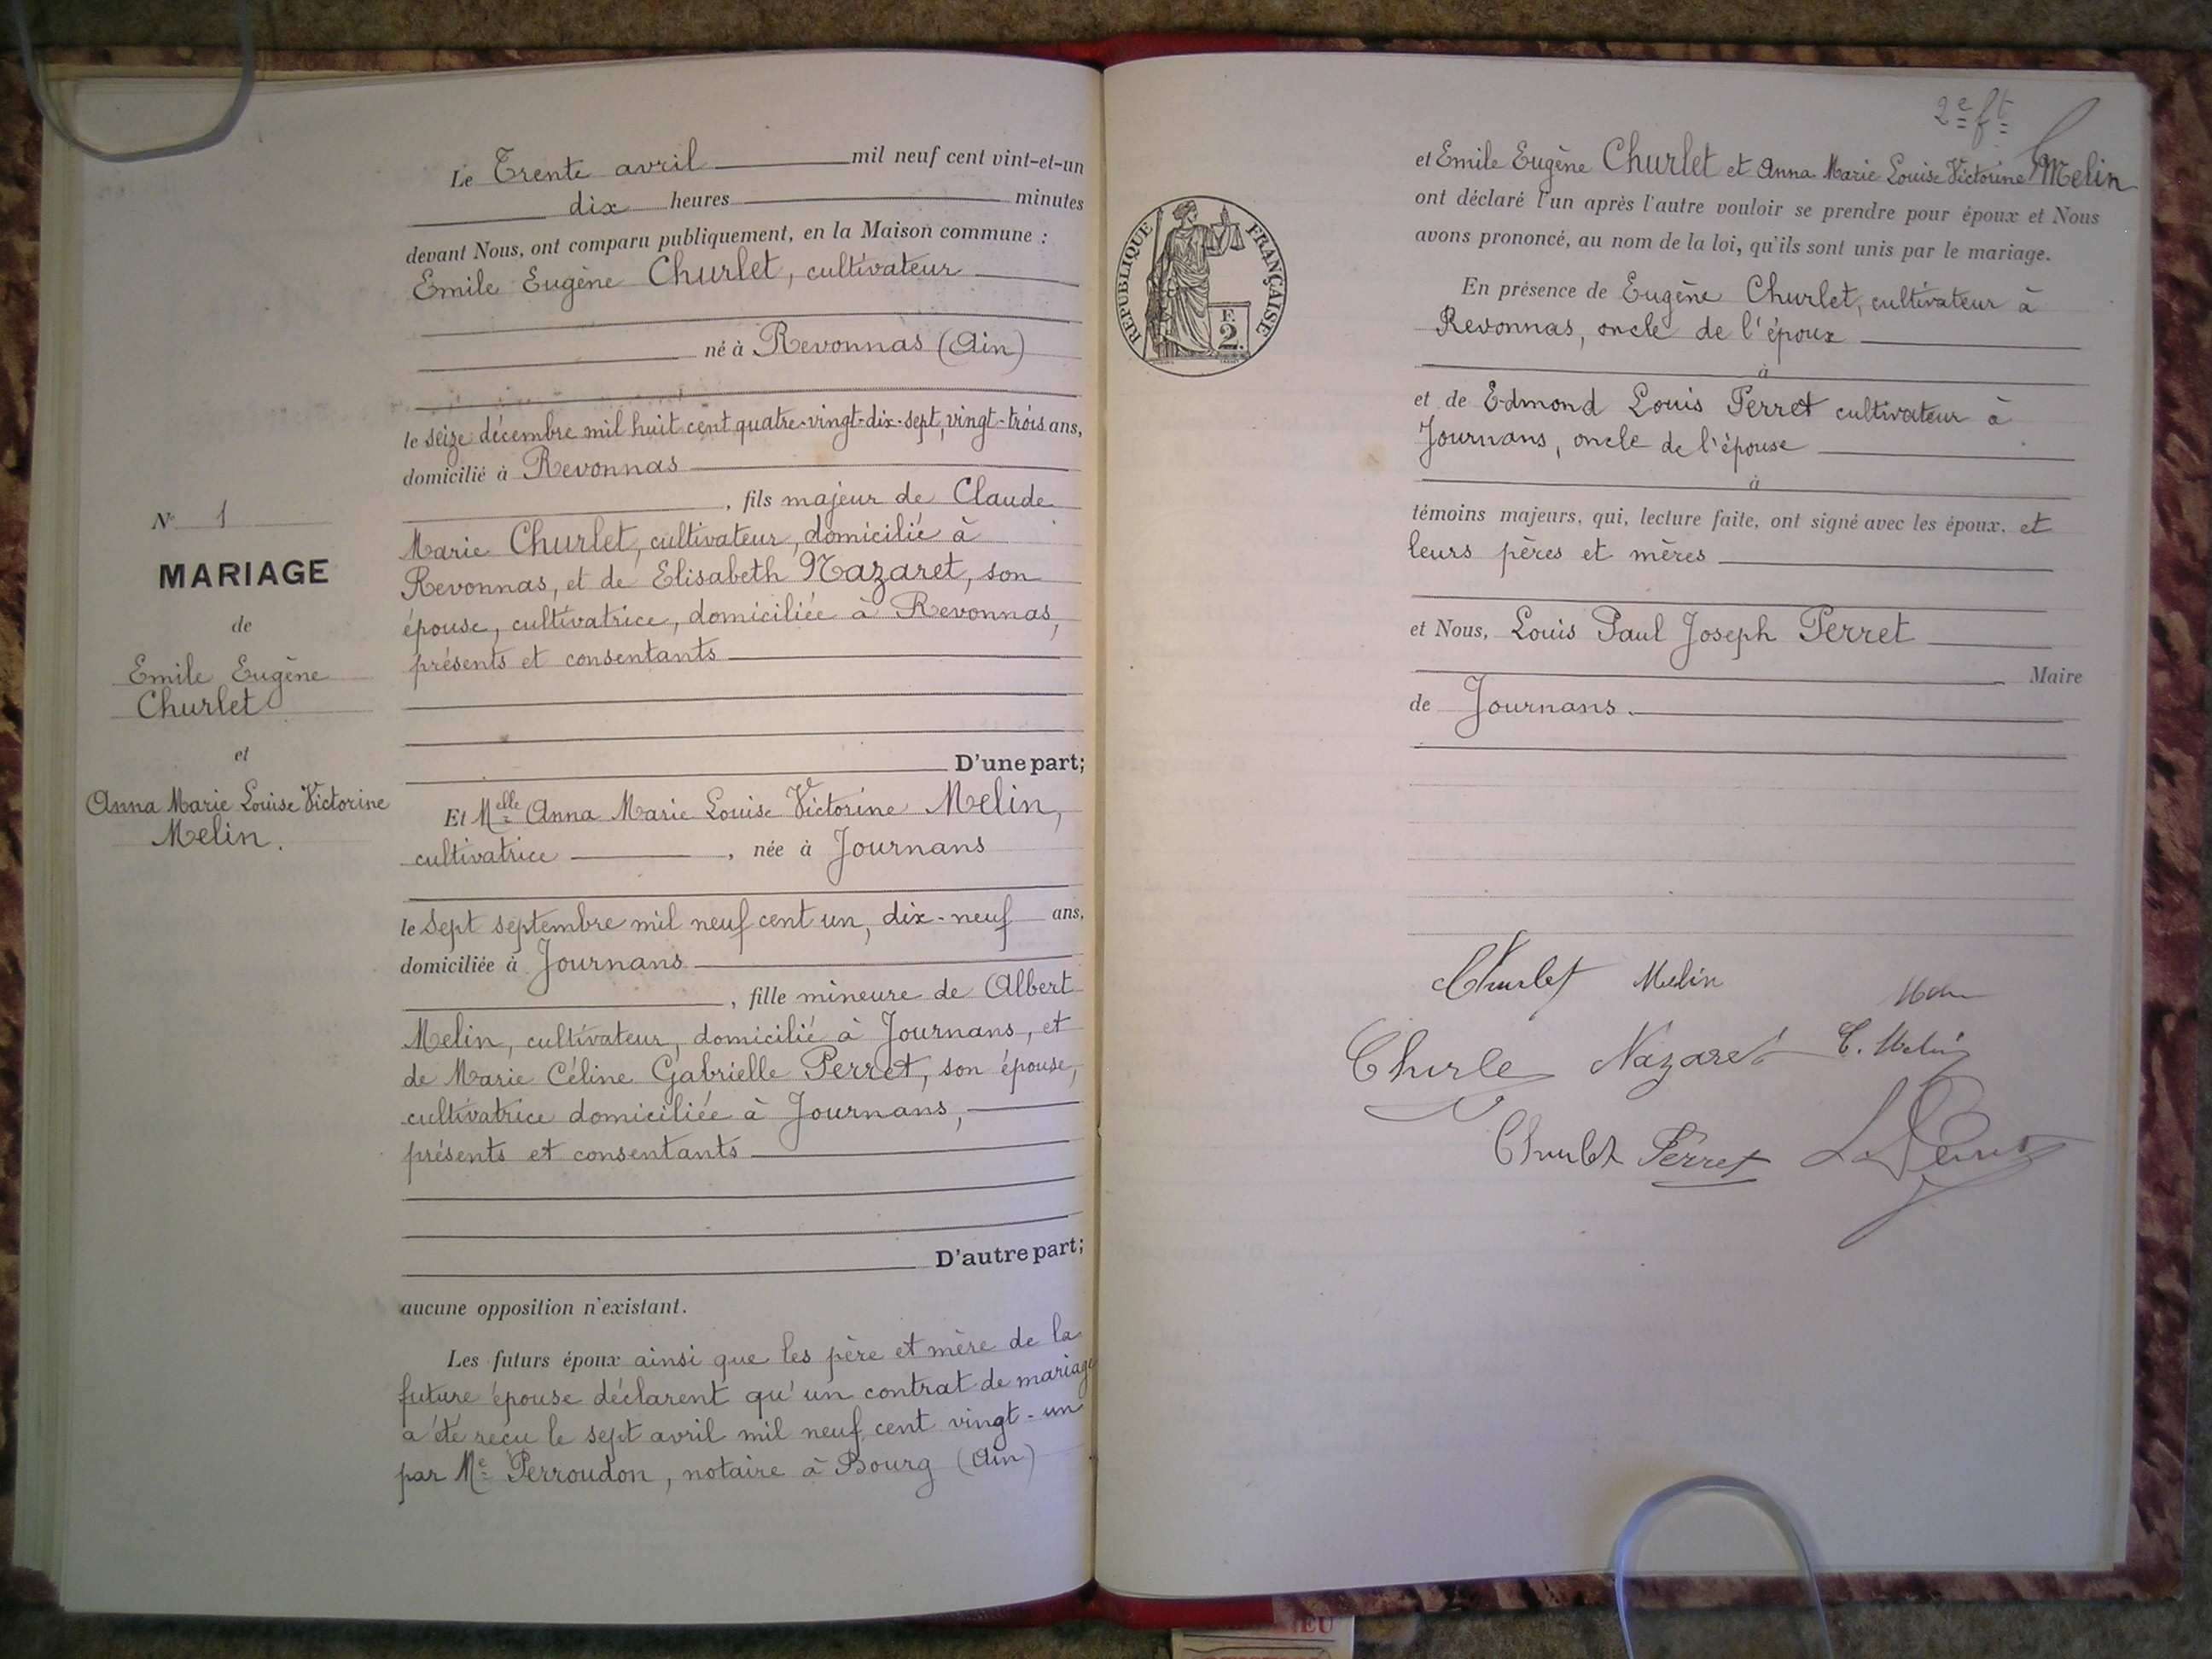 N° 1
MARIAGE
de
Emile Eugène
Churlet
et
Anna Marie Louise Victorine
Melin.
Le Trente avril mil neuf cent vint-et-un
dix heures minutes
devant Nous, ont comparu publiquement, en la Maison commune :
Emile Eugène Churlet, cultivateur
né à Revonnas (Ain)
le seize décembre mil huit cent quatre-vingt-dix-sept, vingt-trois ans,
domicilié à Revonnas
, fils majeur de Claude
Marie Churlet, cultivateur, domicilié à
Revonnas, et de Elisabeth Nazaret, son
épouse, cultivatrice, domiciliée à Revonnas,
présents et consentants
D'une part;
Et Melle Anna Marie Louise Victorine Melin,
cultivatrice , née à Journans
le sept septembre mil neuf cent un, dix-neuf ans,
domiciliée à Journans
, fille mineure de Albert
Melin, cultivateur, domicilié à Journans, et
de Marie Céline Gabrielle Perret, son épouse,
cultivatrice domiciliée à Journans,
présents et consentants
D'autre part;
aucune opposition n'existant.
Les futurs époux ainsi que les père et mère de la
future épouse déclarent qu'un contrat de mariage
a été reçu le sept avril mil neuf cent vingt-un
par Me Perroudon, notaire à Bourg (Ain)
2e ft
RÉPUBLIQUE FRANÇAISE
F.
2.
et Emile Eugène Churlet et Anna Marie Louise Victorine Melin
ont déclaré l'un après l'autre vouloir se prendre pour époux et Nous
avons prononcé, au nom de la loi, qu'ils sont unis par le mariage.
En présence de Eugène Churlet, cultivateur à
Revonnas, oncle de l'époux
à
et de Edmond Louis Perret cultivateur à
Journans, oncle de l'épouse
à
témoins majeurs, qui, lecture faite, ont signé avec les époux. et
leurs pères et mères
et Nous, Louis Paul Joseph Perret
Maire
de Journans.
Churlet Melin
Churle Nazaret C. Melin
Churlet Perret L. Perret